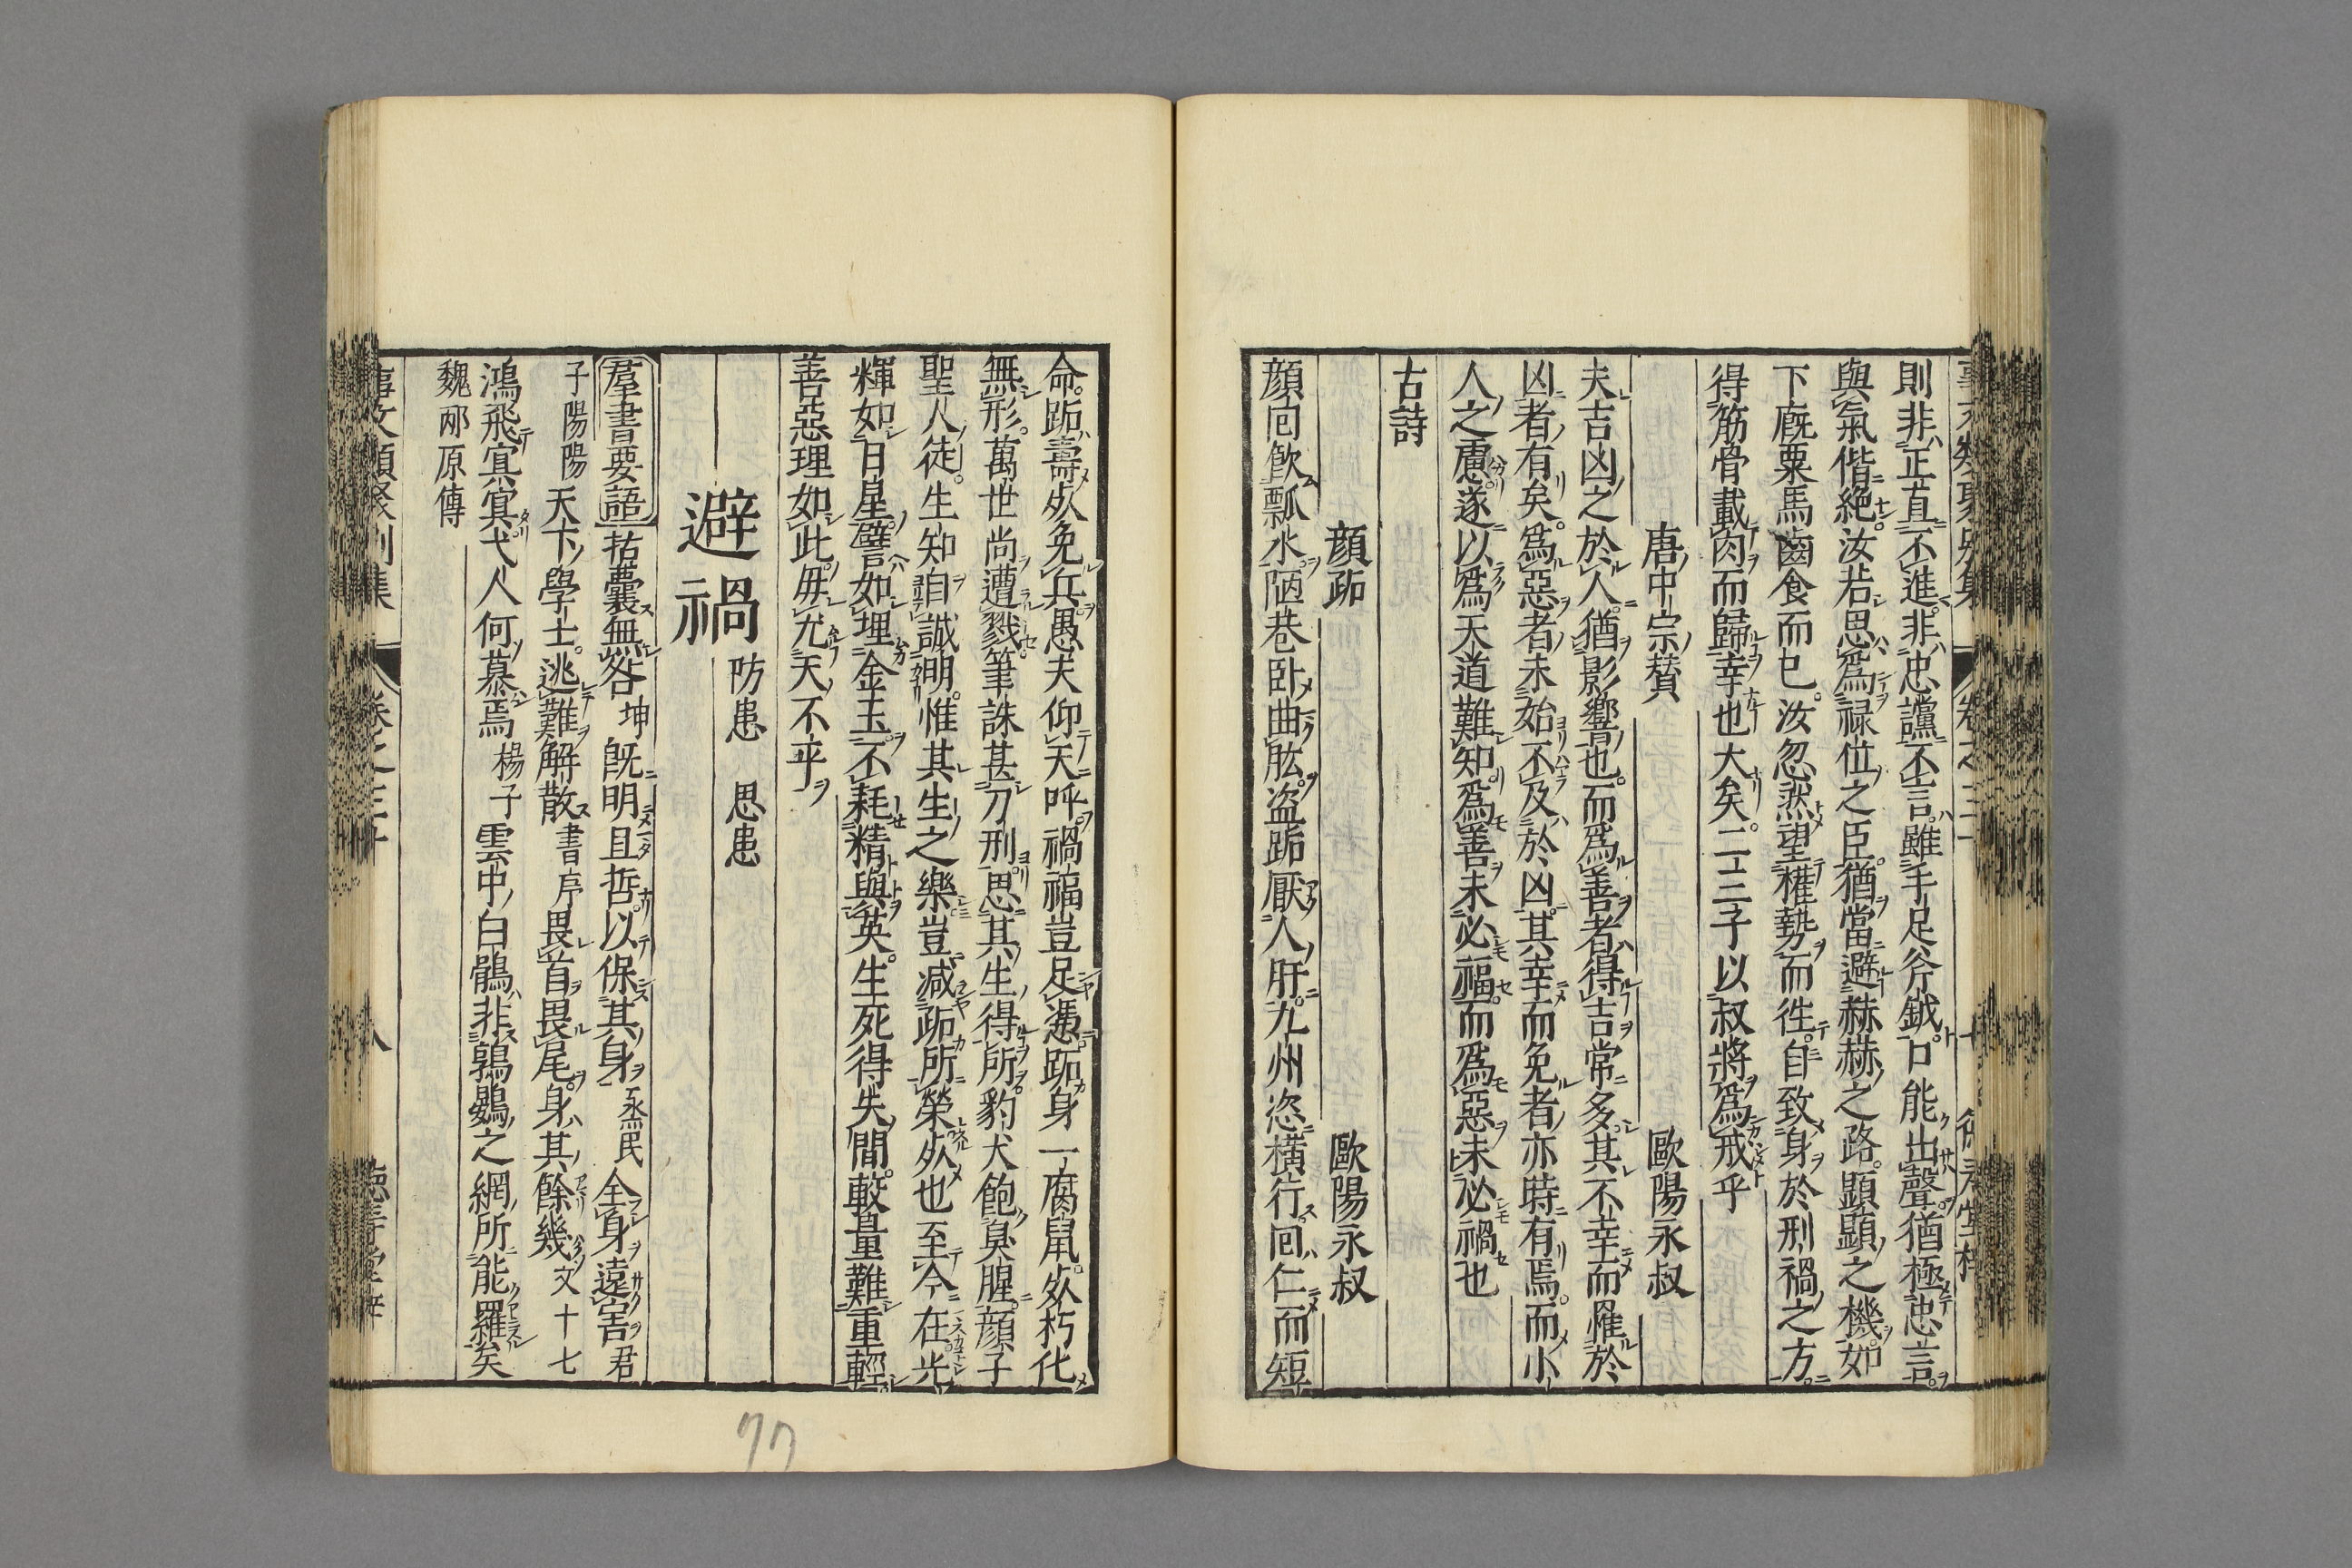 則非正直不進非忠讜不言雖手足斧鉞口能出聲猶極忠言
與氣偕絶汝若思爲祿位之臣猶當避赫赫之路顯顯之機如
下廐粟馬鹵食而已汝忽然望權勢而徃自致身於刑禍之方
得筋骨載肉而歸幸也大矣二三子以叔將爲戒乎
唐中宗賛 歐陽永叔
夫吉凶之於人猶影響也而爲善者得吉常多其不幸而罹於
凶者有矣爲惡者未始不及於凶其幸而免者亦時有焉而小
人之慮遂以爲天道難知爲善未必福而爲惡未必禍也
古詩
顔跖 歐陽永叔
顔囘飮瓢水陋巷卧曲肱盜跖厭人肝九州恣橫行囘仁而短
命跖壽死免兵愚夫仰天呼禍福豈足憑跖身一腐鼠死朽化
無形萬世尚遭戮筆誅甚刀刑思其生得所豹犬飽臭腥顔子
聖人徒生知自誠明惟其生之樂豈减跖所榮死也至今在光
輝如日星譬如埋金玉不耗精與英生死得失間較量難重輕
善惡理如此毋尤天不乎
避禍 防患 思患
羣書要語 括囊無咎 坤 旣明且哲以保其身 烝民 全身遠害 君
子陽陽 天下學士逃難解散 書序 畏首畏尾身其餘幾 文十七
鴻飛冥冥弋人何慕焉 楊子 雲中白鶴非鶉鷃之網所能羅矣
魏邴原傳
事文類聚別集 卷之三十 八
77